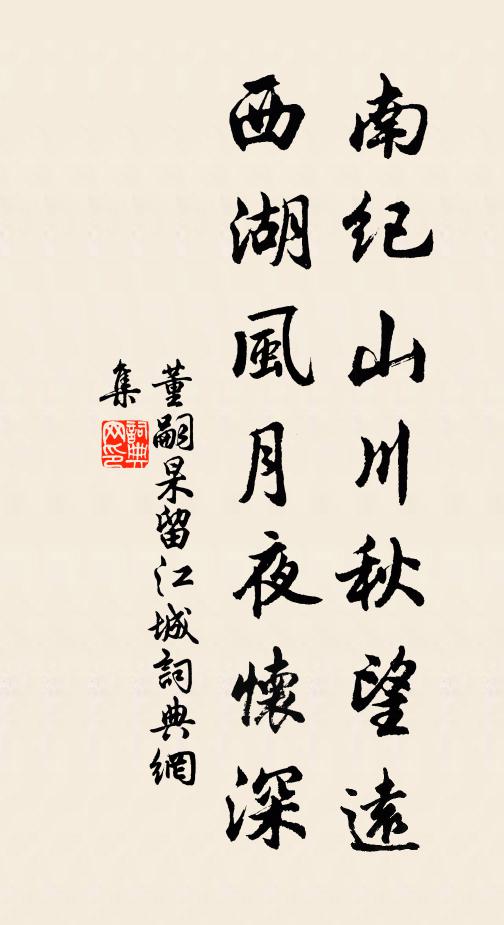 南纪山川秋望遠
西湖風月夜懷深
董嗣杲留江城詞典網
集
詞典
网印